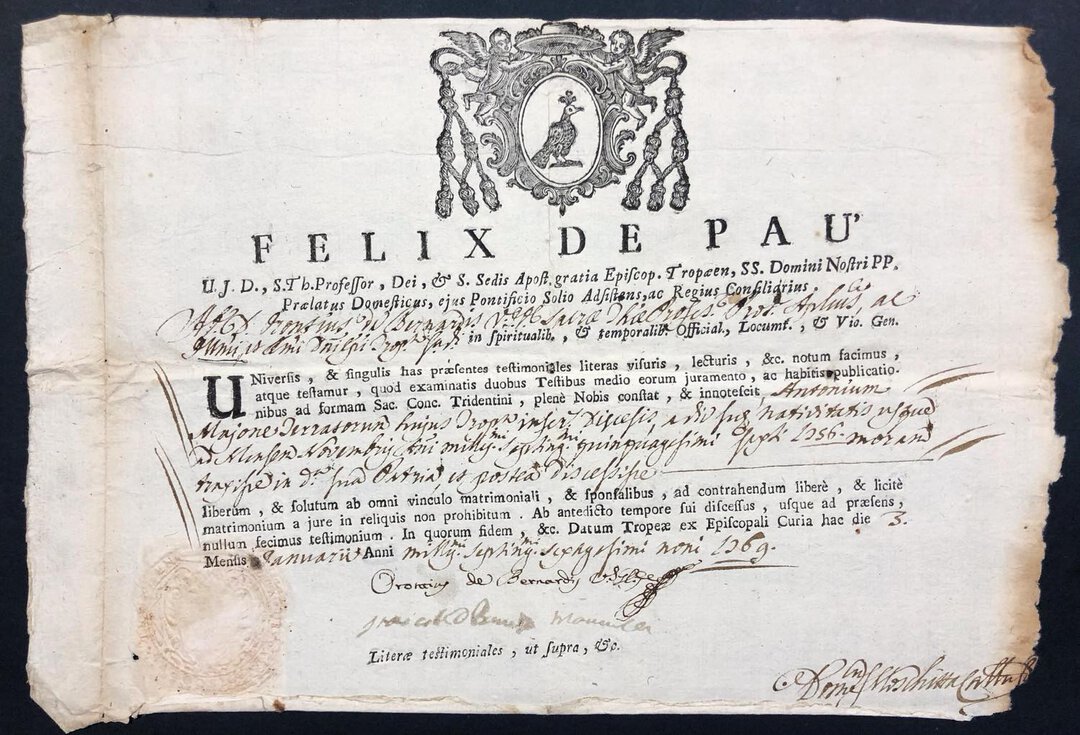 FELIX DE PAU'
U. J. D., S. Th. Professor, Dei, & S. Sedis Apost. gratia Episcop. Tropæen, SS. Domini Nostri PP.
Prælatus Domesticus, ejus Pontificio Solio Adsistens, ac Regius Consiliarius.
de Bernardis Sacræ
in spiritualib., & temporalib. Official., Locumt., & Vic. Gen.
UNiversis, & singulis has præsentes testimoniales literas visuris, lecturis, &c. notum facimus,
atque testamur, quod examinatis duobus Testibus medio eorum juramento, ac habitis publicatio-
nibus ad formam Sac. Conc. Tridentini, plenè Nobis constat, & innotescit Antonium
Majone Terratorum hujus Diœcesis a die suæ nativitatis usque
ad Mensem Novembris quinquagesimi septi 1756. moram
traxisse in sua Patria, et postea discessisse
liberum, & solutum ab omni vinculo matrimoniali, & sponsalibus, ad contrahendum liberè, & licitè
matrimonium a jure in reliquis non prohibitum. Ab antedicto tempore sui discessus, usque ad præsens,
nullum fecimus testimonium. In quorum fidem, &c. Datum Tropeæ ex Episcopali Curia hac die 3.
Mensis Januarii Anni sexagesimi noni 1769.
de Bernardis
Literæ testimoniales, ut supra, &c.